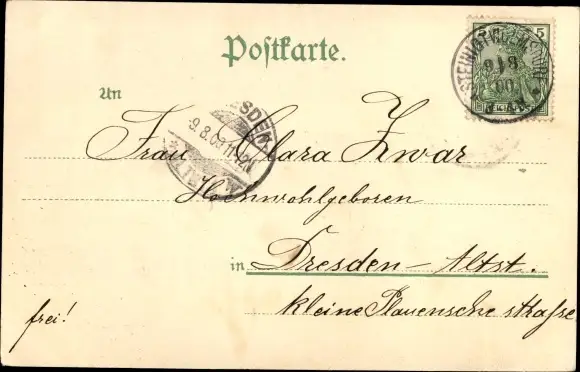 Postkarte.
5
An
Frau Clara Zwar
Hochwohlgeboren
in Dresden-Altst.
kleine Plauensche straße
frei!
DRESDEN
9.8.00.11-12V
ALTST.
9 8
00